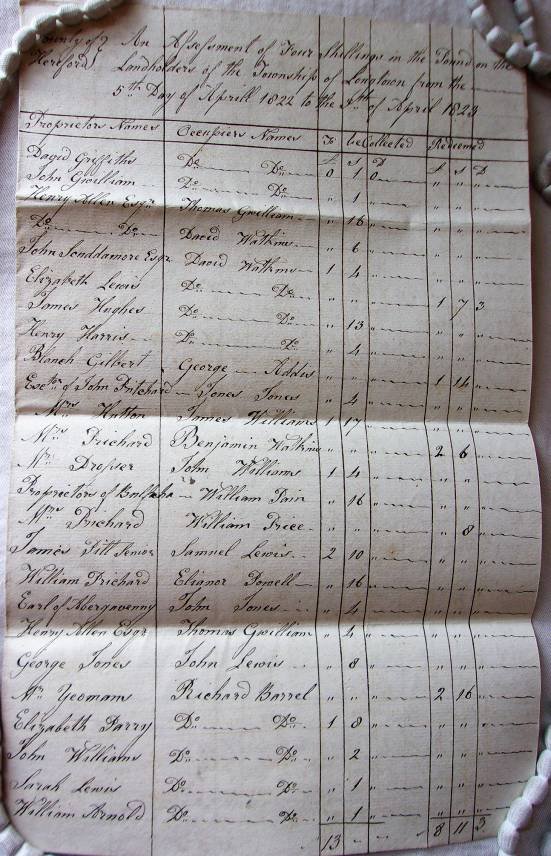 County of } An Assessment of Four Shillings in the Pound on the
Hereford } Landholders of the Township of Longtown from the
5th Day of Aprill 1822 to the 5th of April 1823
Proprietors Names Occupiers Names To be Collected Redeemed
£ s D £ s D
David Griffiths Do Do 0 1 0 " " "
John Gwilliam Do Do " 1 " " " "
Henry Allen Esqr Thomas Gwilliam " 16 " " " "
Do Do David Watkins " 6 " " " "
John Scuddamore Esqr David Watkins 1 4 " " " "
Elizabeth Lewis Do Do " " " 1 7 3
James Hughes Do Do " 13 " " " "
Henry Harris Do Do " 4 " " " "
Blanch Gilbert George Addis " " " 1 14 "
Exetrs of John Pritchard Jones Jones " 4 " " " "
Mrs Hutton James Williams 1 17 " " " "
Mrs Prichard Benjamin Watkins " " " 2 6 "
Mr Prosser John Williams 1 4 " " " "
Proprietors of William Pain " 16 " " " "
Mrs Prichard William Price " " " " 8 "
James Pitt Senior Samuel Lewis 2 10 " " " "
William Prichard Elianor Powell " 16 " " " "
Earl of Abergavenny John Jones " 4 " " " "
Henry Allen Esqr Thomas Gwilliam " 4 " " " "
George Jones John Lewis " 8 " " " "
Mr Yeomans Richard Barrel " " " 2 16 "
Elizabeth Parry Do Do 1 8 " " " "
John Williams Do Do " 2 " " " "
Sarah Lewis Do Do " 1 " " " "
William Arnold Do Do " 1 " " " "
13 " " 8 11 3